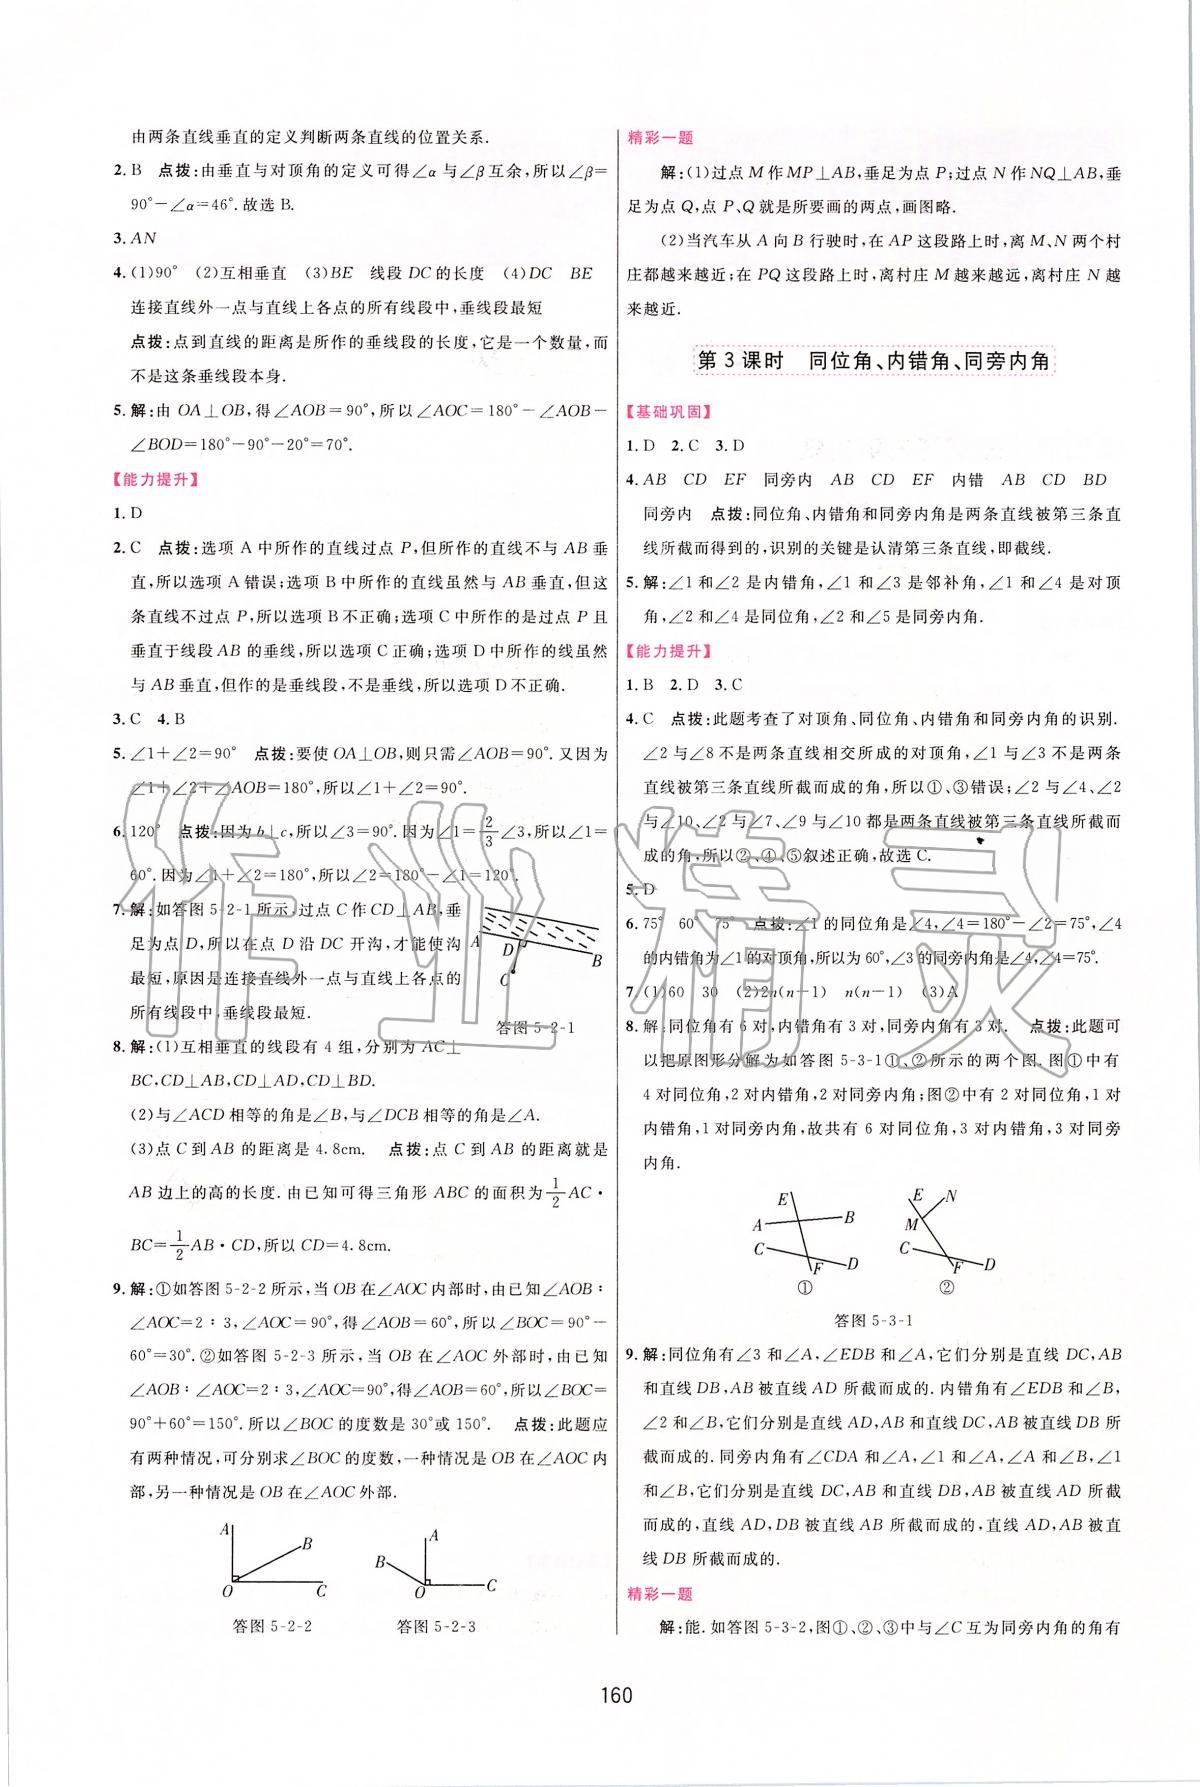 由两条直线垂直的定义判断两条直线的位置关系.
2. B 点拨:由垂直与对顶角的定义可得∠α与∠β互余,所以∠β=
90°-∠α=46°.故选 B.
3. AN
4. (1)90° (2)互相垂直 (3)BE 线段 DC 的长度 (4)DC BE
连接直线外一点与直线上各点的所有线段中,垂线段最短
点拨:点到直线的距离是所作的垂线段的长度,它是一个数量,而
不是这条垂线段本身.
5. 解:由 OA⊥OB,得∠AOB=90°,所以∠AOC=180°-∠AOB-
∠BOD=180°-90°-20°=70°.
【能力提升】
1. D
2. C 点拨:选项 A 中所作的直线过点 P,但所作的直线不与 AB 垂
直,所以选项 A 错误;选项 B 中所作的直线虽然与 AB 垂直,但这
条直线不过点 P,所以选项 B 不正确;选项 C 中所作的是过点 P 且
垂直于线段 AB 的垂线,所以选项 C 正确;选项 D 中所作的线虽然
与 AB 垂直,但作的是垂线段,不是垂线,所以选项 D 不正确.
3. C 4. B
5. ∠1+∠2=90° 点拨:要使 OA⊥OB,则只需∠AOB=90°.又因为
∠1+∠2+∠AOB=180°,所以∠1+∠2=90°.
6. 120° 点拨:因为 b⊥c,所以∠3=90°.因为∠1=2/3∠3,所以∠1=
60°.因为∠1+∠2=180°,所以∠2=180°-∠1=120°.
7. 解:如答图 5-2-1 所示,过点 C 作 CD⊥AB,垂
足为点 D,所以在点 D 沿 DC 开沟,才能使沟
最短,原因是连接直线外一点与直线上各点的
所有线段中,垂线段最短.
A D B C
答图 5-2-1
8. 解:(1)互相垂直的线段有 4 组,分别为 AC⊥
BC,CD⊥AB,CD⊥AD,CD⊥BD.
(2)与∠ACD 相等的角是∠B,与∠DCB 相等的角是∠A.
(3)点 C 到 AB 的距离是 4.8cm. 点拨:点 C 到 AB 的距离就是
AB 边上的高的长度.由已知可得三角形 ABC 的面积为1/2AC·
BC=1/2AB·CD,所以 CD=4.8cm.
9. 解:①如答图 5-2-2 所示,当 OB 在∠AOC 内部时,由已知∠AOB∶
∠AOC=2∶3,∠AOC=90°,得∠AOB=60°,所以∠BOC=90°-
60°=30°.②如答图 5-2-3 所示,当 OB 在∠AOC 外部时,由已知
∠AOB∶∠AOC=2∶3,∠AOC=90°,得∠AOB=60°,所以∠BOC=
90°+60°=150°.所以∠BOC 的度数是 30°或 150°. 点拨:此题应
有两种情况,可分别求∠BOC 的度数,一种情况是 OB 在∠AOC 内
部,另一种情况是 OB 在∠AOC 外部.
A B O C
答图 5-2-2
A B O C
答图 5-2-3
精彩一题
解:(1)过点 M 作 MP⊥AB,垂足为点 P;过点 N 作 NQ⊥AB,垂
足为点 Q,点 P、Q 就是所要画的两点,画图略.
(2)当汽车从 A 向 B 行驶时,在 AP 这段路上时,离 M、N 两个村
庄都越来越近;在 PQ 这段路上时,离村庄 M 越来越远,离村庄 N 越
来越近.
第 3 课时 同位角、内错角、同旁内角
【基础巩固】
1. D 2. C 3. D
4. AB CD EF 同旁内 AB CD EF 内错 AB CD BD
同旁内 点拨:同位角、内错角和同旁内角是两条直线被第三条直
线所截而得到的,识别的关键是认清第三条直线,即截线.
5. 解:∠1 和∠2 是内错角,∠1 和∠3 是邻补角,∠1 和∠4 是对顶
角,∠2 和∠4 是同位角,∠2 和∠5 是同旁内角.
【能力提升】
1. B 2. D 3. C
4. C 点拨:此题考查了对顶角、同位角、内错角和同旁内角的识别.
∠2 与∠8 不是两条直线相交所成的对顶角,∠1 与∠3 不是两条
直线被第三条直线所截而成的角,所以①、③错误;∠2 与∠4、∠2
与∠10、∠2 与∠7、∠9 与∠10 都是两条直线被第三条直线所截而
成的角,所以②、④、⑤叙述正确,故选 C.
5. D
6. 75° 60° 75° 点拨:∠1 的同位角是∠4,∠4=180°-∠2=75°,∠4
的内错角为∠1 的对顶角,所以为 60°,∠3 的同旁内角是∠4,∠4=75°.
7. (1)60 30 (2)2n(n-1) n(n-1) (3)A
8. 解:同位角有 6 对,内错角有 3 对,同旁内角有 3 对. 点拨:此题可
以把原图形分解为如答图 5-3-1①、②所示的两个图.图①中有
4 对同位角,2 对内错角,2 对同旁内角;图②中有 2 对同位角,1 对
内错角,1 对同旁内角,故共有 6 对同位角,3 对内错角,3 对同旁
内角.
E A B C F D
①
E N M C F D
②
答图 5-3-1
9. 解:同位角有∠3 和∠A,∠EDB 和∠A,它们分别是直线 DC,AB
和直线 DB,AB 被直线 AD 所截而成的.内错角有∠EDB 和∠B,
∠2 和∠B,它们分别是直线 AD,AB 和直线 DC,AB 被直线 DB 所
截而成的.同旁内角有∠CDA 和∠A,∠1 和∠A,∠A 和∠B,∠1
和∠B,它们分别是直线 DC,AB 和直线 DB,AB 被直线 AD 所截
而成的,直线 AD,DB 被直线 AB 所截而成的,直线 AD,AB 被直
线 DB 所截而成的.
精彩一题
解:能.如答图 5-3-2,图①、②、③中与∠C 互为同旁内角的角有
160
作业精灵